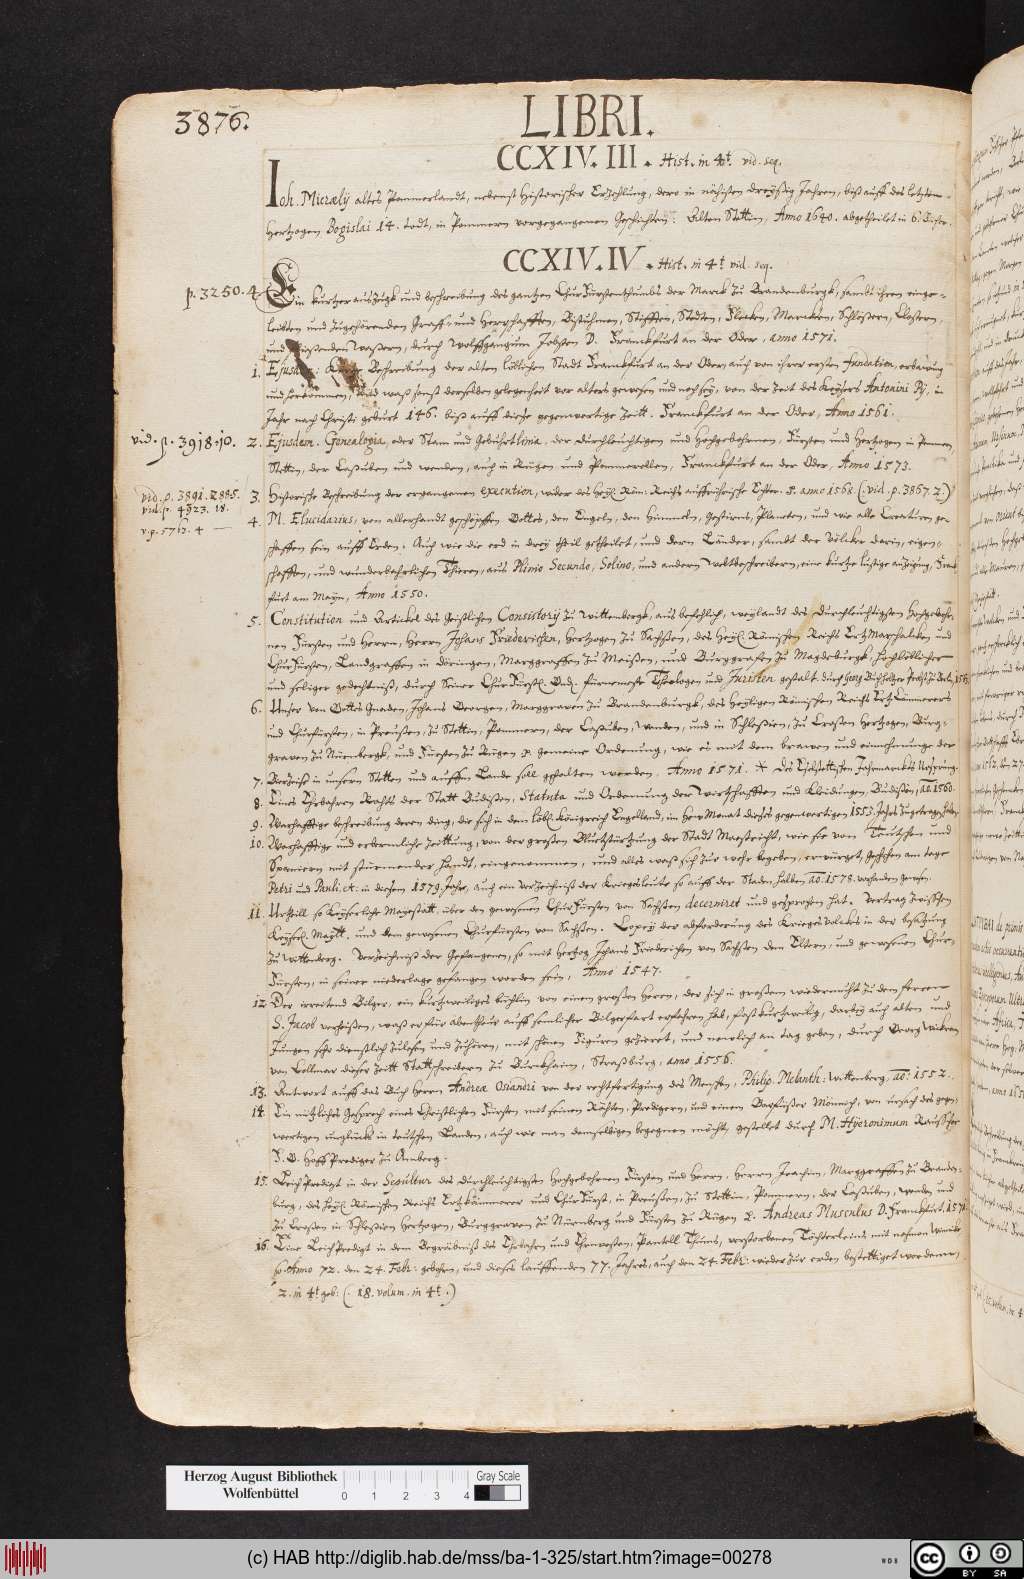 3876.
LIBRI.
CCXIV. III. Hist. in 4t. vid. seq.
Joh. Micrælij altes Pommerlandt, nebenst Historischer Erzehlung, dero in nähisten dreyßig Jahren, biß auff des letzten
Hertzogen Bogislai 14. todt, in Pommern vorgegangenen Geschichten. Alten Stettin, Anno 1640. abgetheilet in 6. Bücher.
CCXIV. IV. Hist. in 4t vid. seq.
p. 3250. 4. Ein kurtzer auszugk und beschreibung des gantzen ChurFürstenthumbs der Marck zu Brandenburgk, sambt ihren einge-
leibten und zugehörenden Graff- und Herrschafften, Bistuhmen, Stifften, Stedten, Flecken, Marcken, Schlössern, Clostern,
und fließenden Waßern, durch Wolffgangum Jobsten D. Franckfurt an der Oder, Anno 1571.
1. Ejusdem Kurtze Beschreibung der alten löblichen Stadt Franckfurt an der Oder, auch von ihrer ersten fundation, erbawung
und herkommen, Und waß sonst derselben gelegenheit vor alters gewesen und noch sey, von der Zeit des Keysers Antonini Pij, im
Jahr nach Christi geburt 146. biß auff diese gegenwertige Zeitt. Franckfurt an der Oder, Anno 1561.
vid. p. 3918. 10. 2. Ejusdem. Genealogia, oder Stam und Gebuhrtlinia, der Durchleuchtigen und Hochgebohrnen, Fursten und Hertzogen in Pommern,
Stettin, der Caßuben und wenden, auch in Rügen und Pommerellen, Franckfurt an der Oder, Anno 1573.
vid. p. 3891. 2885.
vid. p. 4323. 18.
v. p. 5762. 4
3. Historische Beschreibung der ergangenen execution, wider des Heyl. Röm. Reichs auffrührische Echter. anno 1568. (. vid. p. 3867. 2.)
4. M. Elucidarius, von allerhandt geschöpffen Gottes, den Engeln, den Himmeln, Gestirns, Planeten, und wie alle Creaturen ge-
schaffen sein auff Erden. Auch wie die erd in drey theil getheilet, und dern Länder, sambt der Völcker darin, eigen-
schafften, und wunderbahrlichen Thieren, aus Plinio Secundo, Solino, und andern weltbeschreibern, eine kurtze lustige anzeigung, Franck
furt am Mayn, Anno 1550.
5. Constitution und Artickel des Geistlichen Consistorij zu Wittenbergk, aus befehlich, weylandt des Durchleuchtigsten Hochgeboh-
nen Fürsten und Herrn, Herrn Johans Friderichen, Hertzogen zu Sachßen, des Heyl. Römischen Reichs Ertz Marschalcken und
ChurFürsten, Landgraffen in Döringen, Marggraffen zu Meißen, und Burggrafen zu Magdeburgk, Hochlöblicher
und seliger gedechtniß, durch Seiner ChurFürstl. Gnd. fürnemeste Theologen und Juristen gestalt. durch Georg Buchholtzer Probst zu Berlin, 1563.
6. Unser von Gottes Gnaden, Johans Georgen, Marggraven zu Brandenburgk, des Heyligen Römischen Reichs Ertz Cammerers
und Churfursten, in Preußen, zu Stettin, Pommern, der Caßuben, Wenden, und in Schlesien, zu Croßen Hertzogen, Burg-
graven zu Nürenbergk, und Fursten zu Rügen p. gemeine Ordenung, wie es mit dem brawen und einnehmunge der
7. Bierziese in unsern Stetten und auffm Lande soll gehalten werden. Anno 1571. * Des Jahrmarckts Ursprung.
8. Eines Ehrbahren Rahts der Statt Budissen, Statuta und Ordenung der Wirtschafften und Kleidungen, Budissen, ao. 1560.
9. Warhafftige beschreibung deren ding, die sich in dem löbl. Königreich Engelland, im Hew Monat dieses gegenwertigen 1553. Jahrs zugetragen haben
10. Warhafftige und erbermliche Zeittung, von der großen Blutstürtzung der Stadt Maestricht, wie sie von Teutschen und
Spaniern mit stürmender Handt, eingenommen, und alles was sich zur wehr begeben, erwürget, Geschehen am tage
Petri und Pauli, &. in diesem 1579. Jahr, auch ein verzeichniß der Kriegesleute so auff der Staden, Ao. 1578. vorhanden gewesen.
11. Urtheill so Keyserliche Mayestätt. über den gewesenen ChurFursten von Sachßen decerniret und gesprochen hat. Vertrag zwischen
Keyserl. Maytt. und dem gewesenen Churfürsten von Sachßen. Copey der abforderung des Kriegesvolckes in der besatzung
zu Wittenberg. Verzeichniß der Gefangenen, so mit Hertzog Johans Friederichen von Sachßen dem Eltern, und gewesenen Chur-
Fursten, in seiner niederlage gefangen worden sein, Anno 1547.
12. Der irreitend Bilger, ein kurtzweiliges büchlin von einen großen Herrn, der sich in großem wiedermuht zu dem ferren
S. Jacob verheißen, waß er für abentheur auff semlicher Bilgerfart erfahren hab, fast kurtzwilig, darbey auch alten und
Jungen sehr dienstlich zulesen und zuhören, mit schönen Figuren gezieret, und newlich an tag geben, durch Georg Wickram
von Collmar dieser zeit Stattschreibern zu Burckhaim, Straßburg, anno 1556.
13. Antwort auff das Buch Herrn Andreæ Osiandri von der rechtfertigung des Menschen, Philip. Melanth: Wittenberg, ao. 1552.
14. Ein nützliches Gesprech eines Christlichen Fursten mit seinen Rähten, Predigern, und einem Barfüßer Mönnich, von ursach des gegen-
wertigen unglücks in teutschen Landen, auch wie man demselbigen begegnen möcht, gestellet durch M. Hyeronimum Rauscher
P. G. Hoff Prediger zu Amberg.
15. Leich Predigt in der Sepultur des Durchleuchtigsten Hochgebohrnen Fürsten und Herrn, Herrn Joachim, Marggraffen zu Branden-
burg, des Heyl. Römischen Reichs Ertzkämmerer und ChurFürst, in Preußen, zu Stettin, Pommern, der Caßuben, wenden und
zu Croßen in Schlesien Hertzogen, Burggraven zu Nürnberg und Fürsten zu Rügen &. Andreas Musculus D. Franckfurt, 1571.
16. Eine LeichPredigt in dem Begräbniß des Ehrbahren und Ehrnvesten, Pantell Thums, verstorbenen Töchterleins, mit nahmen
so Anno 72. den 24. Febr: gebohren, und dieses lauffenden 77. Jahres, auch den 24. Febr: wieder zur erden bestettiget worden
2. in 4t geb: (. 18. volum. in 4t.)
Herzog August Bibliothek
Wolfenbüttel
0 1 2 3 4
Gray Scale
(c) HAB http://diglib.hab.de/mss/ba-1-325/start.htm?image=00278
WDB
cc BY SA